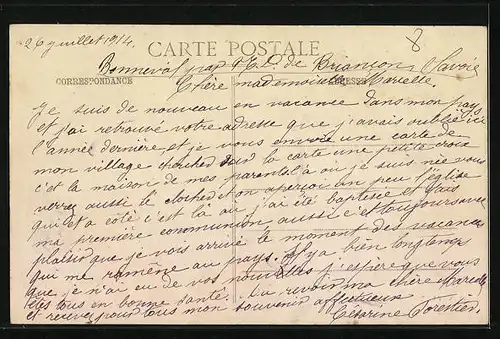 26 juillet 1914.
8
CARTE POSTALE
Bonneval par N.D. de Briançon, Savoie
CORRESPONDANCE
Chère mademoiselle Marielle.
Je suis de nouveau en vacance dans mon pays
et j'ai retrouvé votre adresse que j'avais oublié ici
l'année dernière et je vous envoie une carte de
mon village sur la carte une petite croix
c'est la maison de mes parents là où je suis née vous
verrez aussi le clocher et on aperçoi un peu l'église
qui est a coté c'est là où j'ai été baptisée et fais
ma première communion aussi c'est toujours avec
plaisir que je vois arrivé le moment des vacances
qui me ramène au pays. Il y a bien longtemps
que je n'ai eu de vos nouvelles j'espère que vous
êtes tous en bonne santé. Au revoir ma chère Marielle
et recevez pour tous mon souvenir affectueux
Césarine Forestier.